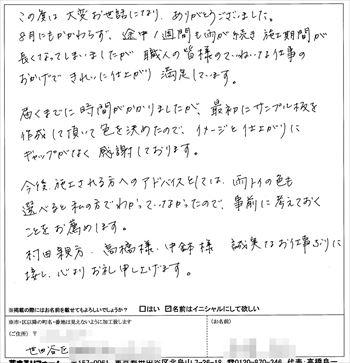 この度は大変お世話になり、ありがとうございました。
8月にもかかわらず、途中1週間も雨が続き施工期間が
長くなってしまいましたが職人の皆様のていねいな仕事の
おかげできれいに仕上がり満足しています。
届くまでに時間がかかりましたが、最初にサンプル板を
作成して頂いて色を決めたので、イメージと仕上がりに
ギャップがなく感謝しております。
今後、施工される方へのアドバイスとしては、雨トイの色も
選べると私の方でわかっていなかったので、事前に考えておく
ことをお薦めします。
村田親方、高橋様、伊師様 誠実なお仕事ぶりに
接し、心よりお礼申し上げます。
※掲載の際にはお名前を載せてもよろしいでしょうか? □はい ☑名前はイニシャルにして欲しい
※市・区以降の町名・番地は見えないように加工致します
(ご住所) 〒
(お名前)
世田谷区